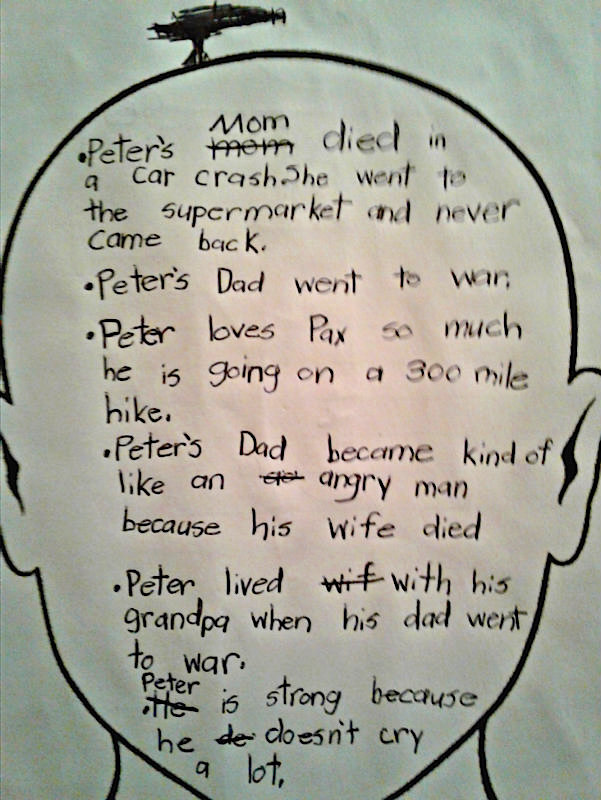 Mom
•Peter's mom died in
a car crash. She went to
the supermarket and never
came back.
•Peter's Dad went to war.
•Peter loves Pax so much
he is going on a 300 mile
hike.
•Peter's Dad became kind of
like an angry man
because his wife died
•Peter lived wif with his
grandpa when his dad went
to war.
Peter
•He is strong because
he de doesn't cry
a lot.